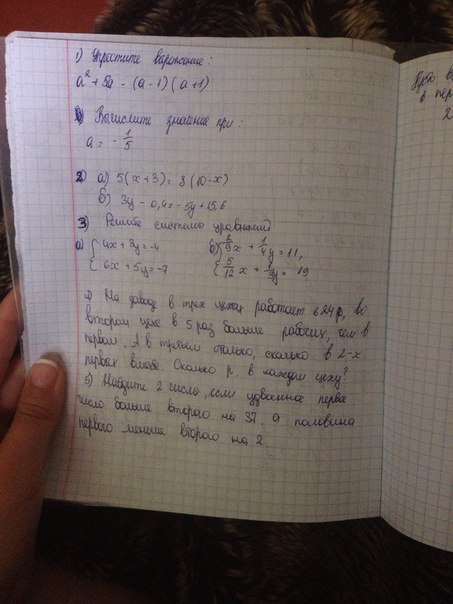 1) Упростите выражение:
a² + 5a - (a-1)(a+1)
Вычислите значение при:
a = - 1/5
2) а) 5(x+3) = 8(10-x)
б) 3y - 0,4 = -5y + 15,6
3) Решите систему уравнений
а) { 4x + 3y = -4 в) { 2/9 x + 1/4 y = 11,
{ 6x + 5y = -7 { 5/12 x + 1/3 y = 19
На заводе в трех цехах работает 624 р, во
втором цехе в 5 раз больше рабочих, чем в
первом. А в третьем столько, сколько в 2-х
первых вместе. Сколько р. в каждом цеху?
5) Найдите 2 числа, если удвоенное первое
число больше второго на 37, а половина
первого меньше второго на 2.
в пер
2